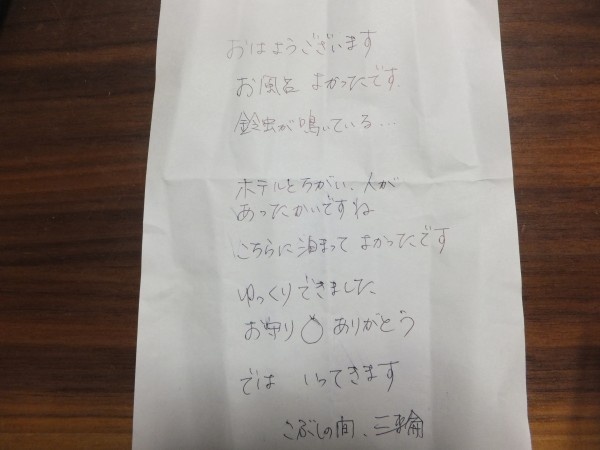 おはようございます
お風呂 よかったです.
鈴虫が鳴いている…
ホテルとちがい、人が
あったかいですね
こちらに泊まって よかったです
ゆっくりできました
お守り ありがとう
では いってきます
こぶしの間、三輪